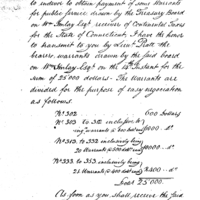 to endeavor to obtain payment of some Warrants
for public service drawn by the Treasury Board
on Wm Imlay Esqr. receiver of Continental Taxes
for the State of Connecticut; I have the honor
to transmit to you by Lieut. Platt the
bearer, warrants drawn by the said board
on Wm Imlay Esqr. on the Instant for the
sum of 25'000 dollars. The Warrants are
divided for the purpose of easy negociation
as follows
No. 302 600 dollars
No. 303 to 312 inclusive
warrants @ 600 doll 6000
No. 313 to 332 inclusively being
20 Warrants @ 500 10000
No. 333 to 353 inclusively being
21 Warrants @ 400 8400
Total 25'000
As soon as you shall receive the said